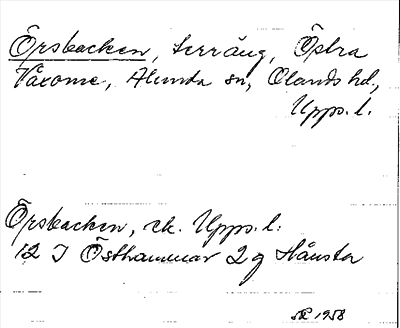 Örsbacken, terräng, Östra
Våxome, Alunda sn, Olands hd,
Upps. l.
Örsbacken, ek. Upps. l.
12 I Östhammar 2 g Hånsta
1958